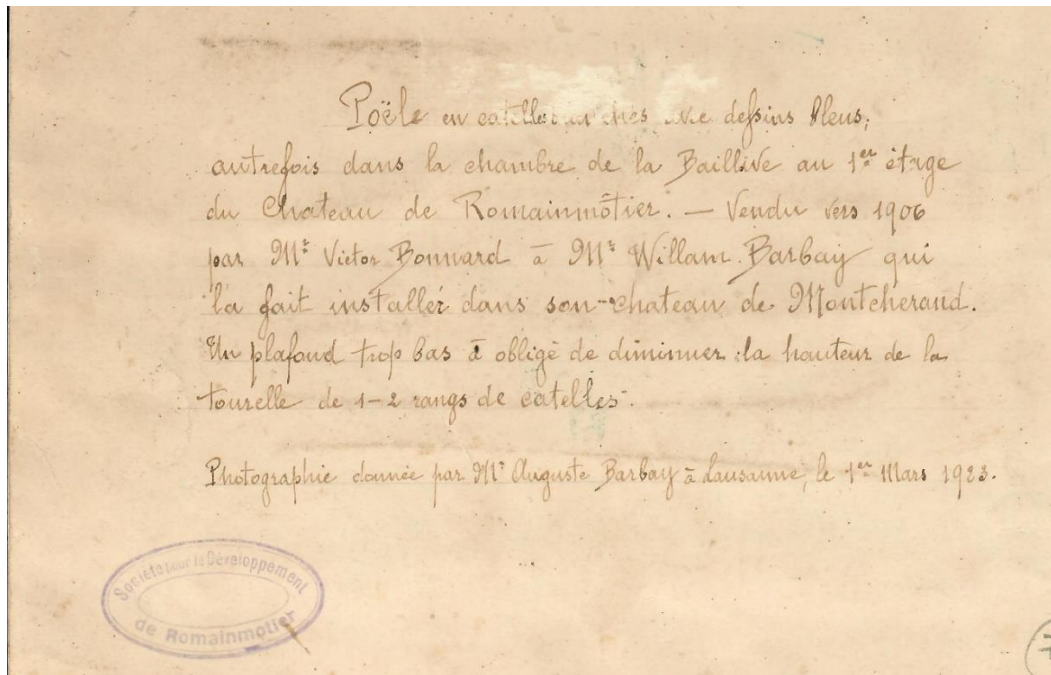 Poële en catelles blanches avec dessins bleus;
autrefois dans la chambre de la Baillive au 1er étage
du Chateau de Romainmôtier. — Vendu vers 1906
par Mr Victor Bonnard à Mr Willam Barbay qui
l'a fait installer dans son chateau de Montcherand.
Un plafond trop bas à obligé de diminuer la hauteur de la
tourelle de 1-2 rangs de catelles.
Photographie donnée par Mr Auguste Barbay à Lausanne, le 1er Mars 1923.
Société pour le Développement
de Romainmotier